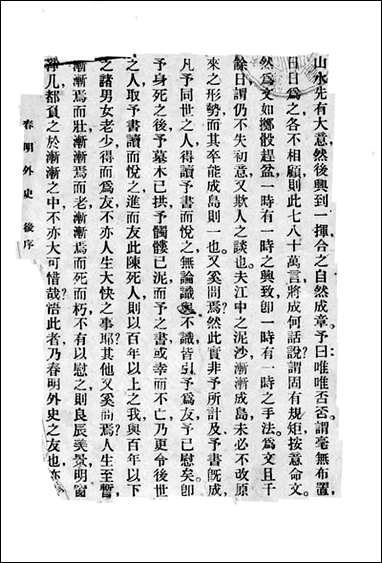 山水先有大意,然後興到一揮,合之自然成章。予曰:唯唯否否。謂毫無布置,
日日爲之,各不相顧,則此七八十萬言,將成何話說?謂固有規矩,按意命文,
然爲文如擲骰趕盆,一時有一時之興致,卽一時有一時之手法。爲文且千
餘日,謂仍不失初意,又欺人之談也。夫江中之泥沙,漸漸成島,未必不改原
來之形勢,而其卒能成島則一也。又奚問焉?然此實非予所計及。予書旣成,
凡予同世之人,得讀予書而悅之,無論識與不識,皆引予爲友,予已慰矣。卽
予身死之後,予墓木已拱,予髑髏已泥,而予之書,或幸而不亡,乃更令後世
之人,取予書讀而悅之,進而友此陳死人,則以百年以上之我,與百年以下
之諸男女老少,得而爲友,不亦人生大快之事耶?其他又奚問焉?人生至暫,
漸漸焉而壯,漸漸焉而老,漸漸焉而死而朽,不有以慰之,則良辰美景,明窗
淨几,都負之於漸漸之中,不亦大可惜哉?悟此者,乃春明外史之友也,亦
春明外史 後序